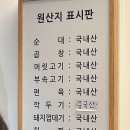 원산지 표시판
순 대 : 국내산
곱 창 : 국내산
머릿고기 : 국내산
부속고기 : 국내산
편 육 : 국내산
깍 두 기 : 중국산
돼지껍데기 : 국내산